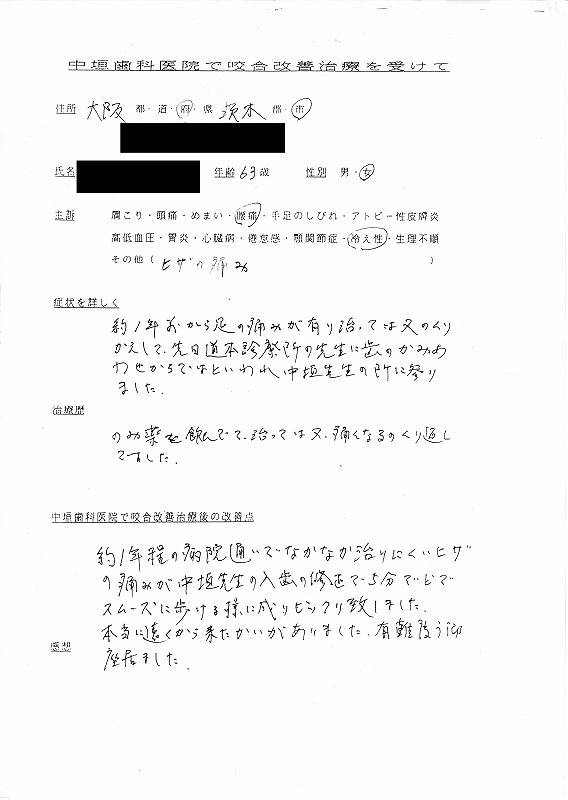 中垣歯科医院で咬合改善治療を受けて
住所 大阪 都・道・府・県 茨木 郡・市
氏名 年齢 63歳 性別 男・女
主訴 肩こり・頭痛・めまい・腰痛・手足のしびれ・アトピー性皮膚炎
高低血圧・胃炎・心臓病・倦怠感・顎関節症・冷え性・生理不順
その他（ ヒザの痛み ）
症状を詳しく
約1年前から足の痛みが有り治っては又のくり
かえしで、先日道本診療所の先生に歯のかみあ
わせからではといわれ中垣先生の所に参り
ました.
治療歴
のみ薬を飲んでて、治っては又、痛くなるのくり返し
でました.
中垣歯科医院で咬合改善治療後の改善点
約1年程の病院通いでなかなか治りにくいヒザ
の痛みが中垣先生の入歯の修正で5分ほどで
スムーズに歩ける様に成りビックリ致しました.
本当に遠くから来たかいがありました.有難度う御
感想
座居ました.